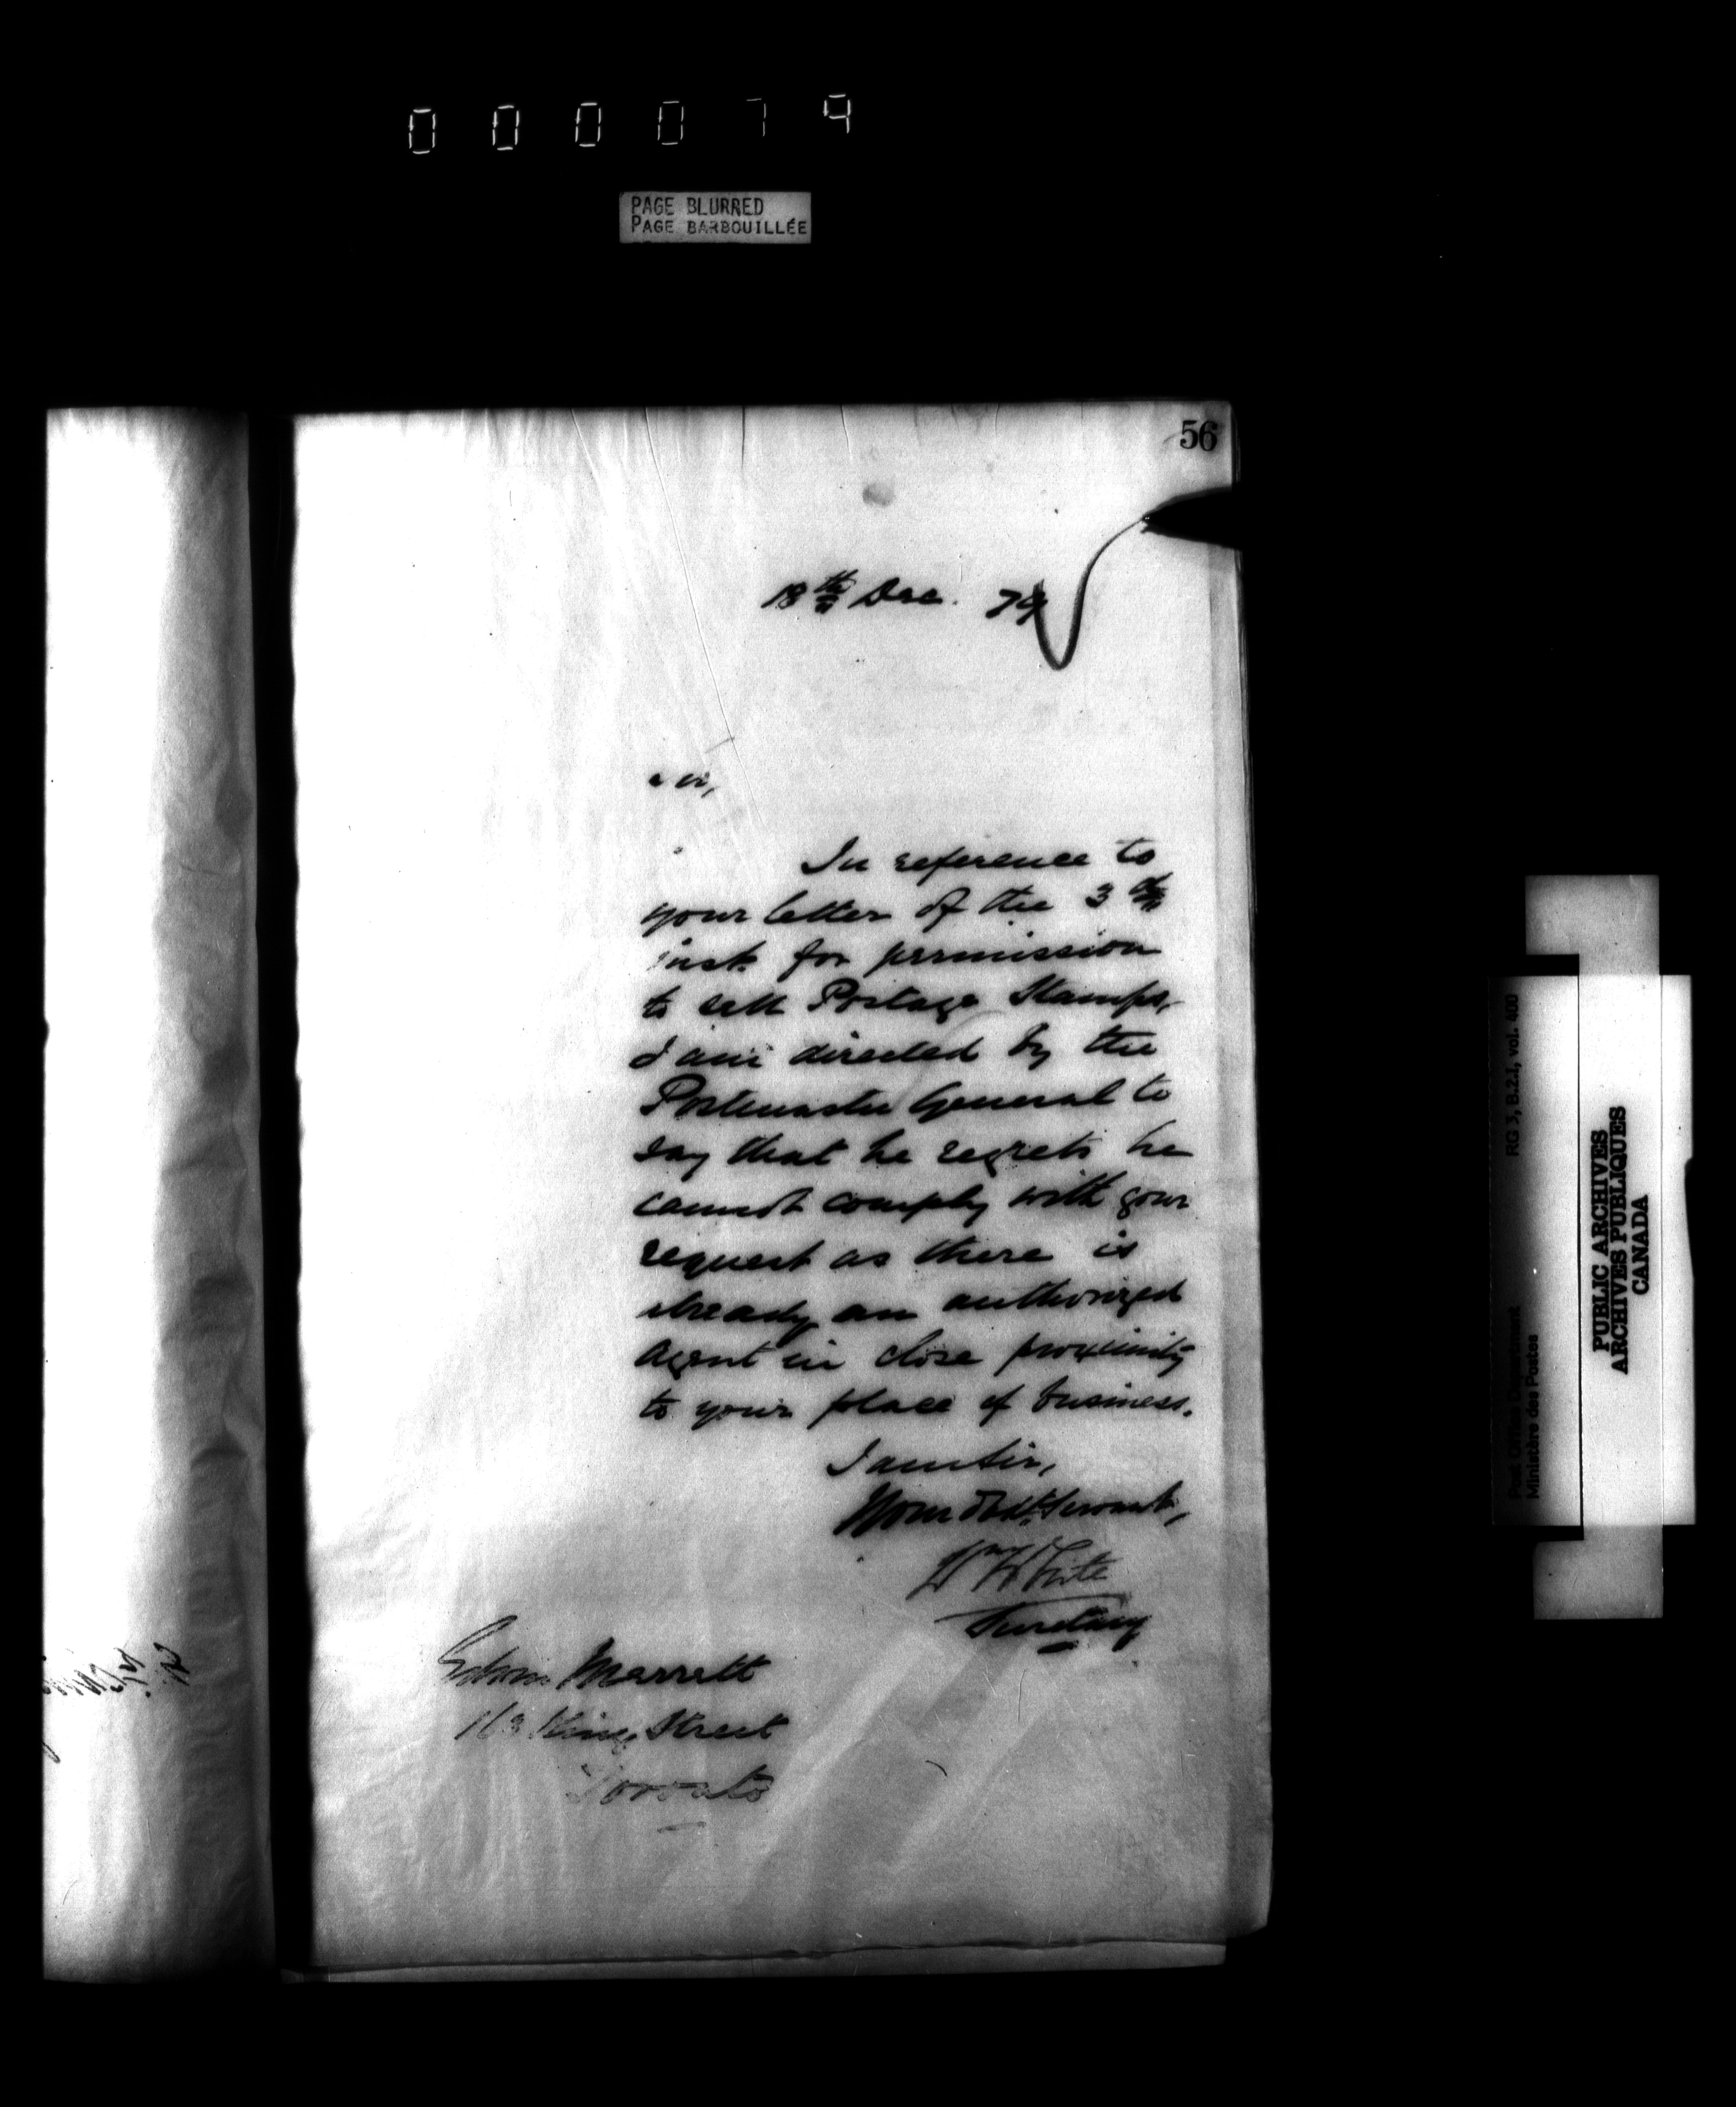 000079
PAGE BLURRED
PAGE BARBOUILLÉE
56
18th Dec. 79
Sir,
In reference to
your letter of the 3th
inst. for permission
to sell Postage Stamps,
I am directed by the
Postmaster General to
say that he regrets he
cannot comply with your
request as there is
already an authorized
Agent in close proximity
to your place of business.
I am Sir,
Your Obdt. Servant,
Wm White
Secretary
Edwin Marrett
King Street
Toronto
RG 3, B.2.1, vol. 400
Post Office Department
Ministère des Postes
PUBLIC ARCHIVES
ARCHIVES PUBLIQUES
CANADA